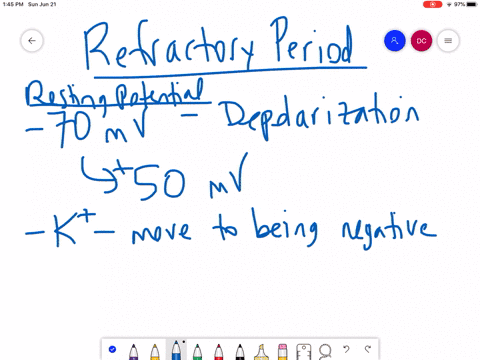 1:45 PM Sun Jun 21
97%
DC
Refractory Period
Resting Potential
-70 mV - Depolarization
+50 mV
- K+ - move to being negative